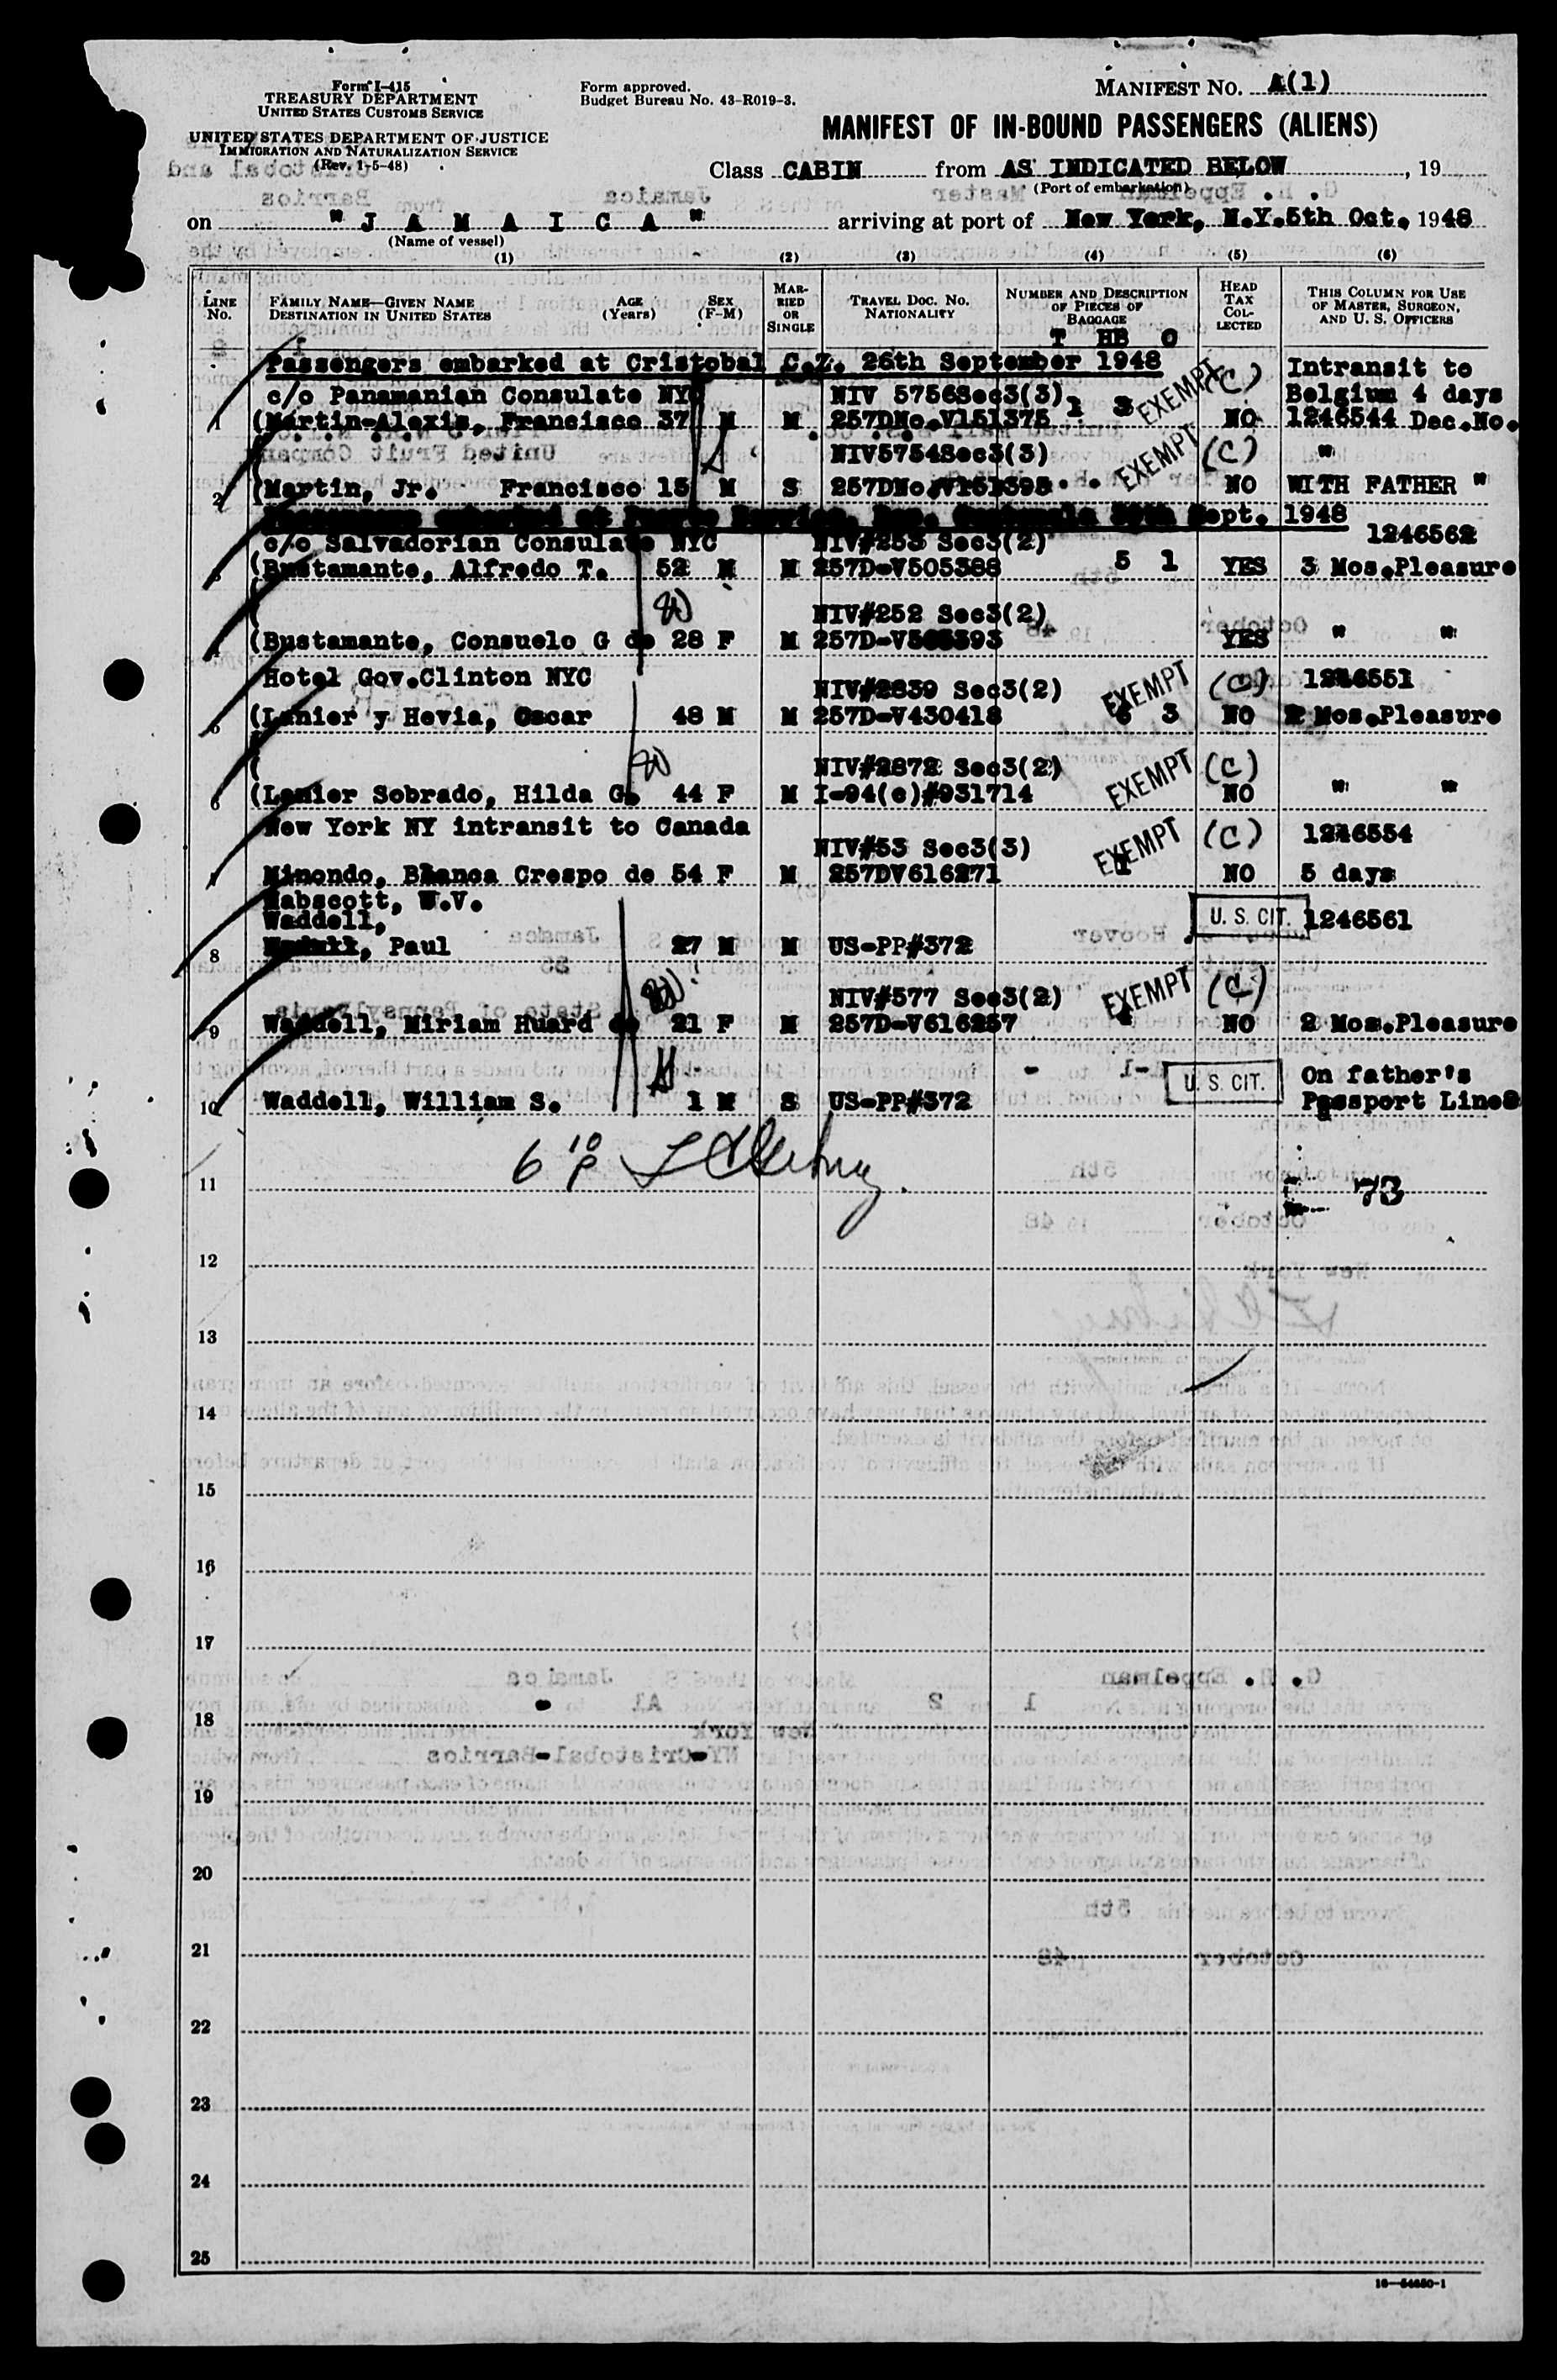 Form I-415
TREASURY DEPARTMENT
UNITED STATES CUSTOMS SERVICE
UNITED STATES DEPARTMENT OF JUSTICE
IMMIGRATION AND NATURALIZATION SERVICE
(Rev. 1-5-48)
Form approved.
Budget Bureau No. 43-R019-3.
MANIFEST NO. A(1)
MANIFEST OF IN-BOUND PASSENGERS (ALIENS)
Class CABIN from AS INDICATED BELOW, 19
(Port of embarkation)
on "J A M A I C A" arriving at port of New York, N.Y. 5th Oct. 1948
(Name of vessel)
(1) (2) (3) (4) (5) (6)
LINE No. FAMILY NAME—GIVEN NAME DESTINATION IN UNITED STATES AGE (Years) SEX (F-M) MARRIED OR SINGLE TRAVEL DOC. NO. NATIONALITY NUMBER AND DESCRIPTION OF PIECES OF BAGGAGE HEAD TAX COLLECTED THIS COLUMN FOR USE OF MASTER, SURGEON, AND U. S. OFFICERS
T HB O
Passengers embarked at Cristobal C.Z. 26th September 1948
Intransit to
c/o Panamanian Consulate NYC NIV 5756Sec3(3) EXEMPT (C) Belgium 4 days
1 (Martin-Alexis, Francisco 37 M M 257DNo.V151375 1 3 NO 1246544 Dec.No.
NIV5754Sec3(3) EXEMPT (C) "
2 (Martin, Jr. Francisco 15 M S NO WITH FATHER "
embarked at Puerto Barrios, Sept. 1948
c/o Salvadorian Consulate NYC NIV#253 Sec3(2) 1246562
(Bustamante, Alfredo T. 52 M M 257D-V505388 5 1 YES 3 Mos.Pleasure
NIV#252 Sec3(2)
(Bustamante, Consuelo G de 28 F M YES " "
Hotel Gov.Clinton NYC NIV#2839 Sec3(2) EXEMPT (C) 1246551
(Lanier y Hevia, Oscar 48 M M 257D-V430418 6 3 NO 2 Mos.Pleasure
NIV#2872 Sec3(2) EXEMPT (C)
6 (Lanier Sobrado, Hilda G. 44 F M I-94(c)#931714 NO " "
New York NY intransit to Canada NIV#53 Sec3(3) EXEMPT (C) 1246554
Minondo, Blanca Crespo de 54 F M 257DV616271 NO 5 days
Mabscott, W.V.
Waddell, U. S. CIT. 1246561
8 Paul 27 M M US-PP#372
NIV#577 Sec3(2) EXEMPT (C)
9 Waddell, Miriam Huard de 21 F M 257D-V616257 NO 2 Mos.Pleasure
U. S. CIT. On father's
10 Waddell, William S. 1 M S US-PP#372 Passport Line8
6 10 P
11 73
12
13
14
15
16
17
18
19
20
21
22
23
24
25
16—54650-1